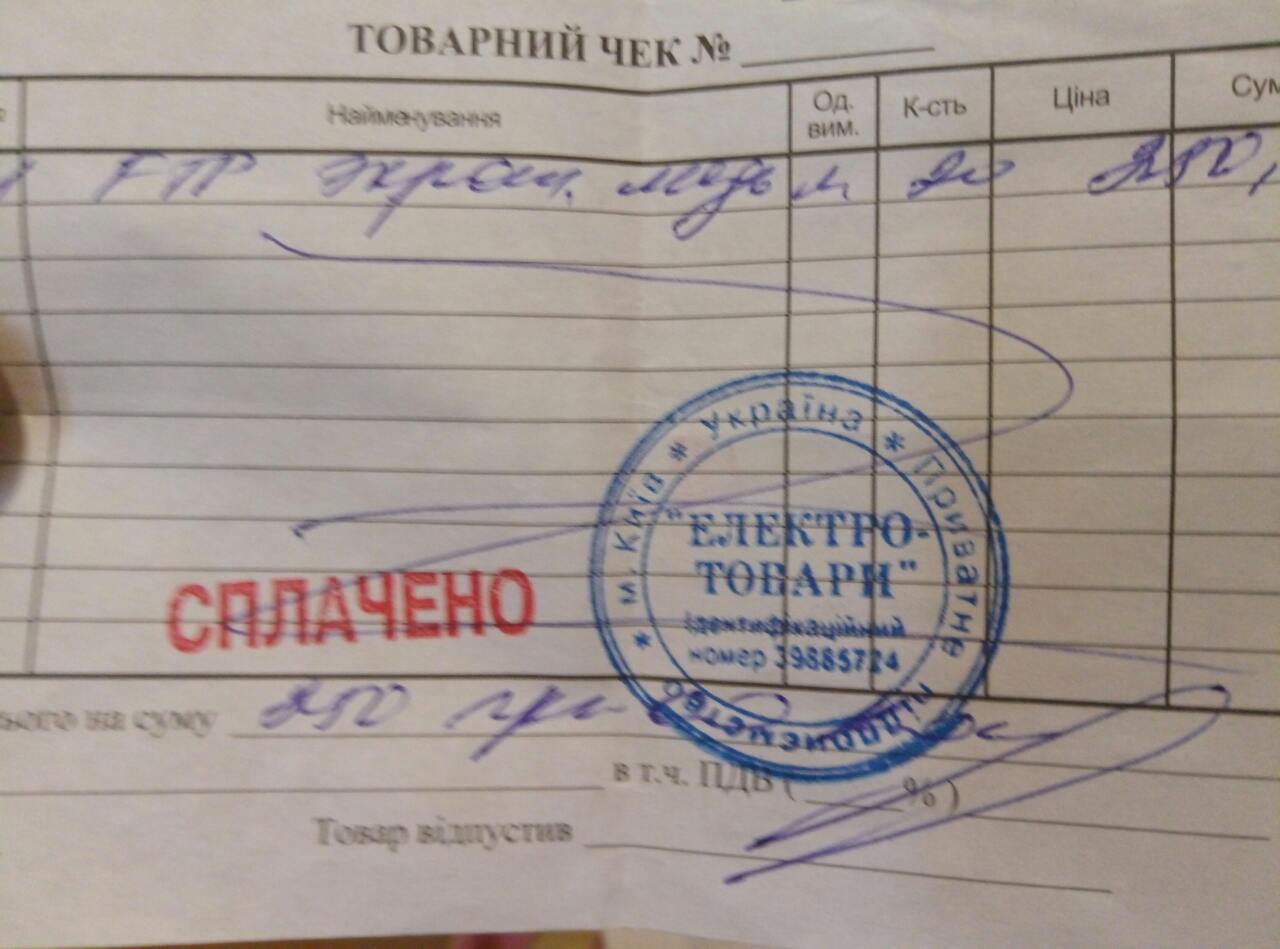 ТОВАРНИЙ ЧЕК №
Найменування Од. вим. К-сть Ціна Сум
FTP экран. медь м 20 250,
* м. Київ * Україна * Приватне підприємство
"ЕЛЕКТРО-
ТОВАРИ"
Ідентифікаційний
номер 39885724
СПЛАЧЕНО
ього на суму 250 грн
в т.ч. ПДВ ( % )
Товар відпустив